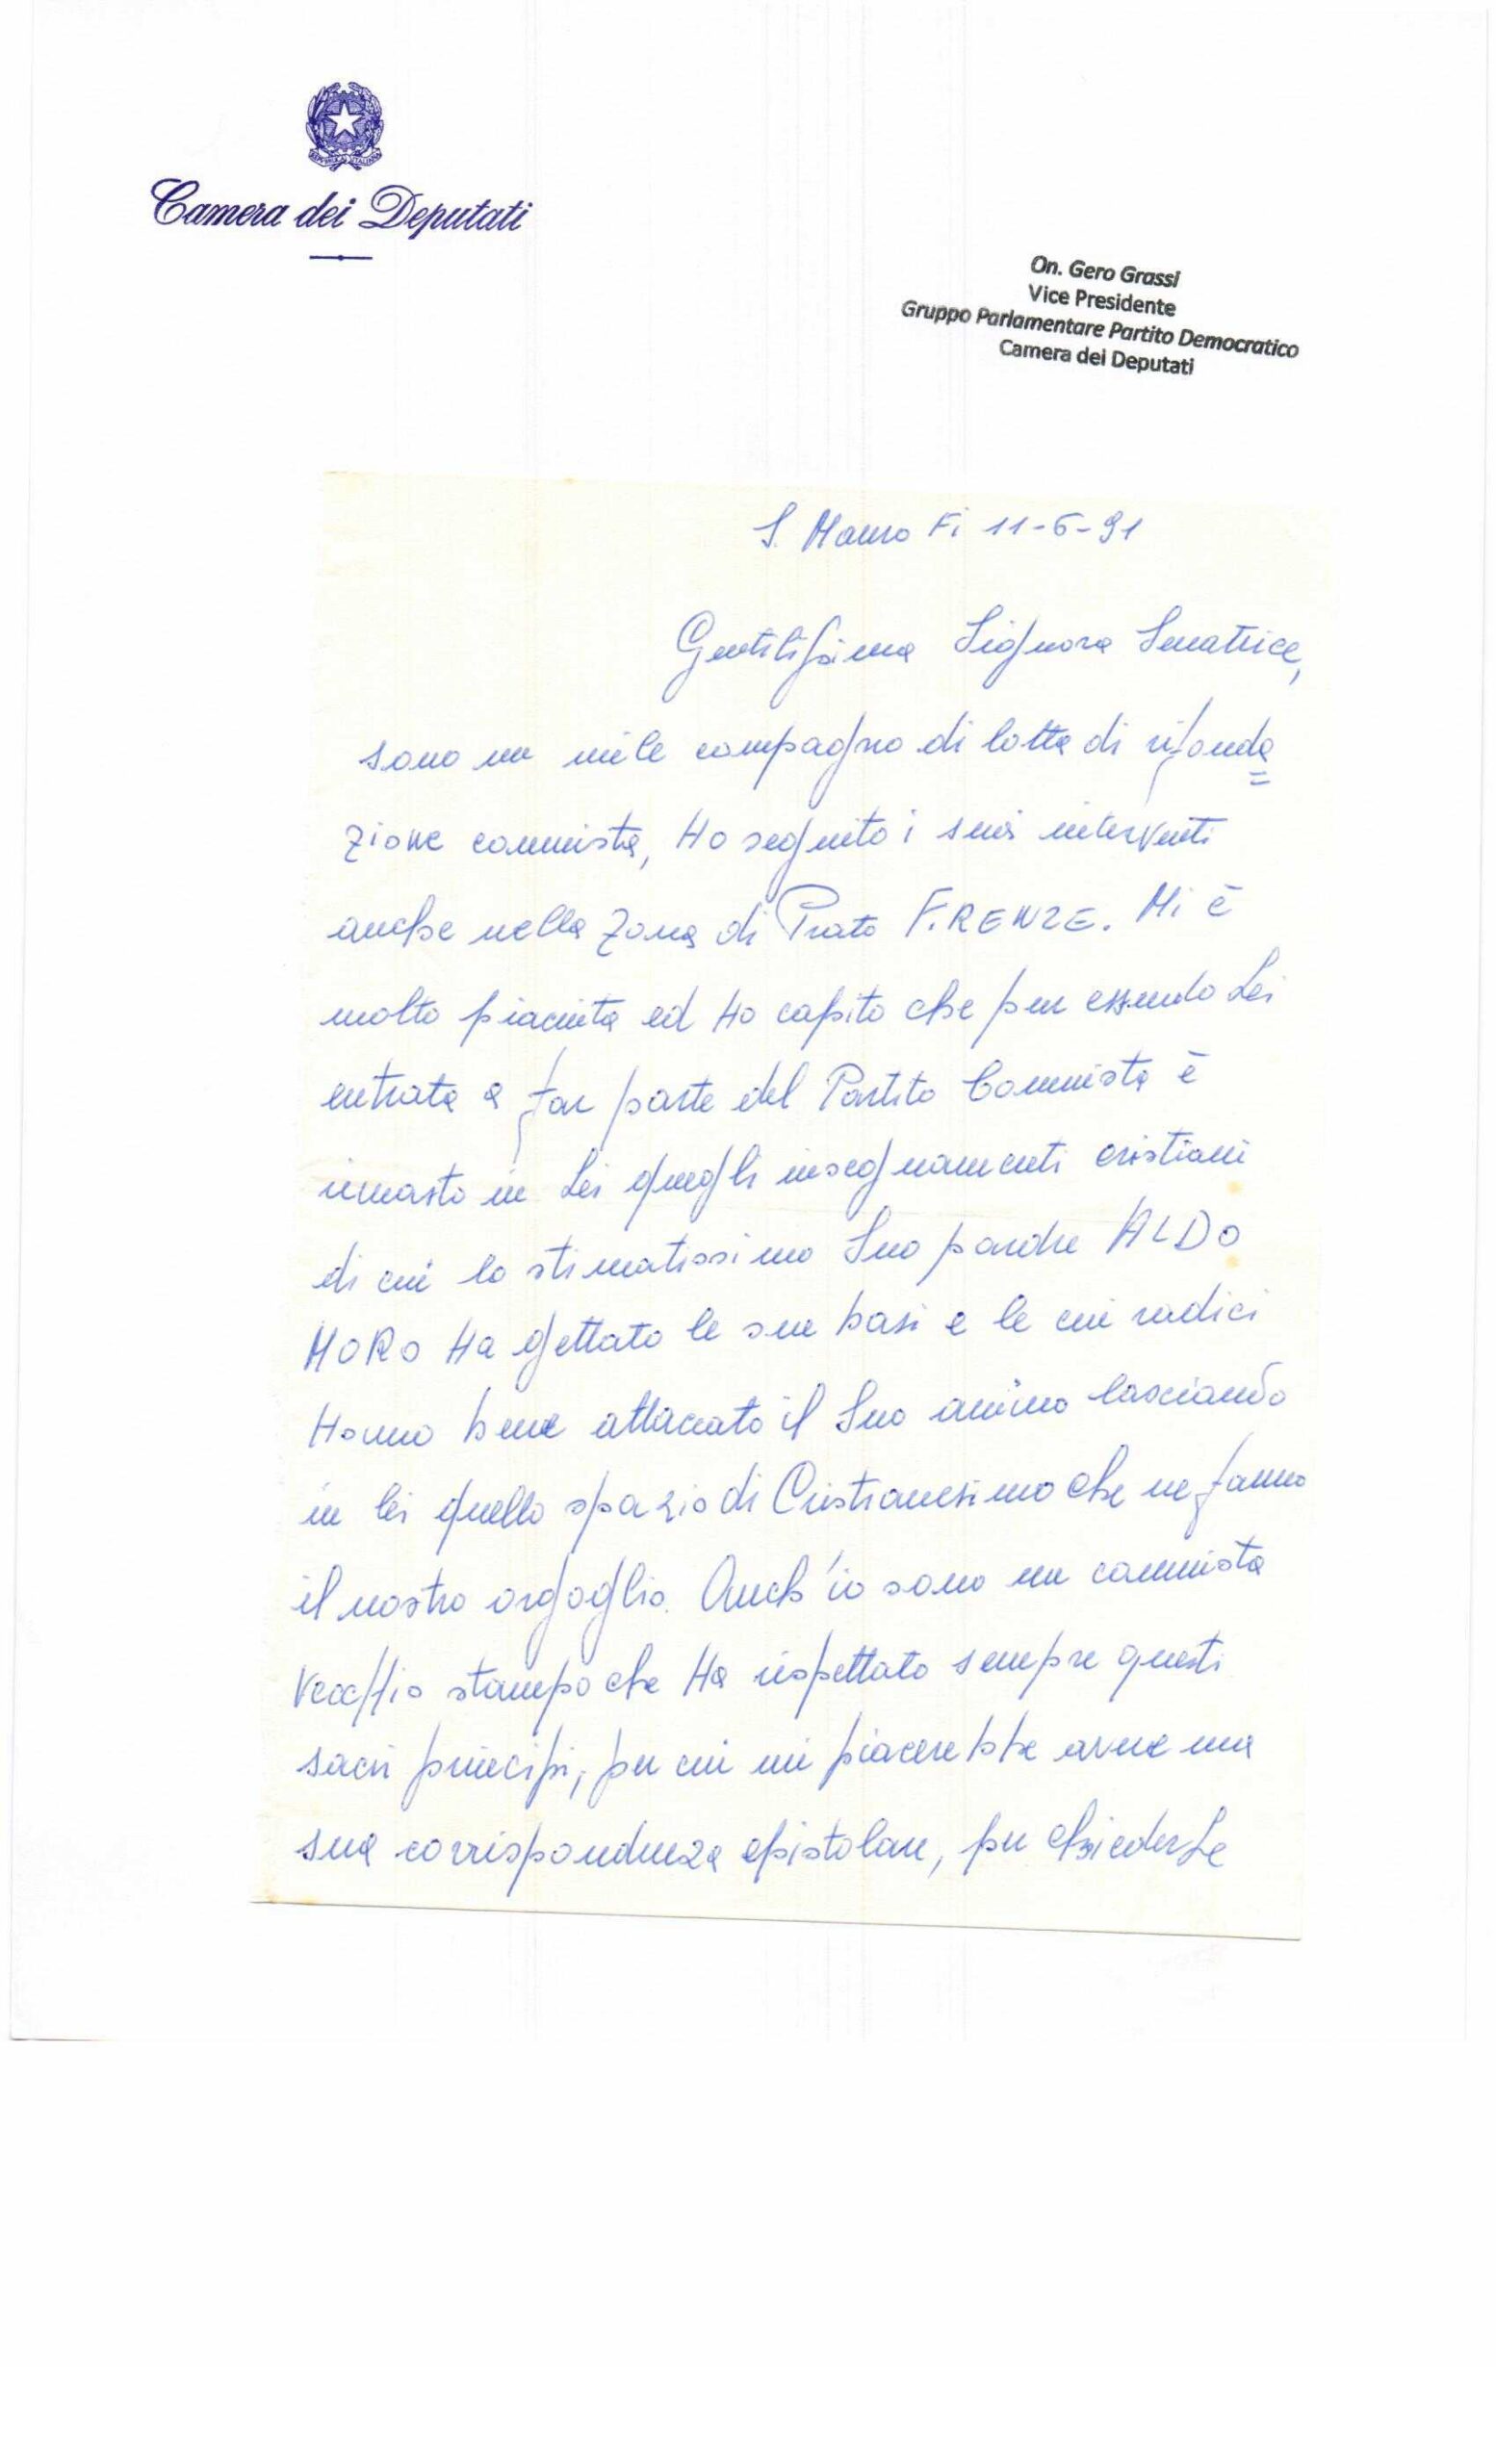 REPUBBLICA ITALIANA
Camera dei Deputati
On. Gero Grassi
Vice Presidente
Gruppo Parlamentare Partito Democratico
Camera dei Deputati
S. Mauro Fi 11-6-91
Gentilissima Signora Senatrice,
sono un umile compagno di lotta di rifonda=
zione comunista, Ho seguito i suoi interventi
anche nella zona di Prato FIRENZE. Mi è
molto piaciuta ed Ho capito che pur essendo Lei
entrata a far parte del Partito Comunista è
rimasto in Lei quegli insegnamenti cristiani
di cui lo stimatissimo Suo padre ALDO
MORO Ha gettato le sue basi e le cui radici
Hanno bene attaccato il Suo animo lasciando
in lei quello spazio di Cristianesimo che ne fanno
il nostro orgoglio. Anch'io sono un comunista
vecchio stampo che Ha rispettato sempre questi
sacri principi, per cui mi piacerebbe avere una
sua corrispondenza epistolare, per chiederLe